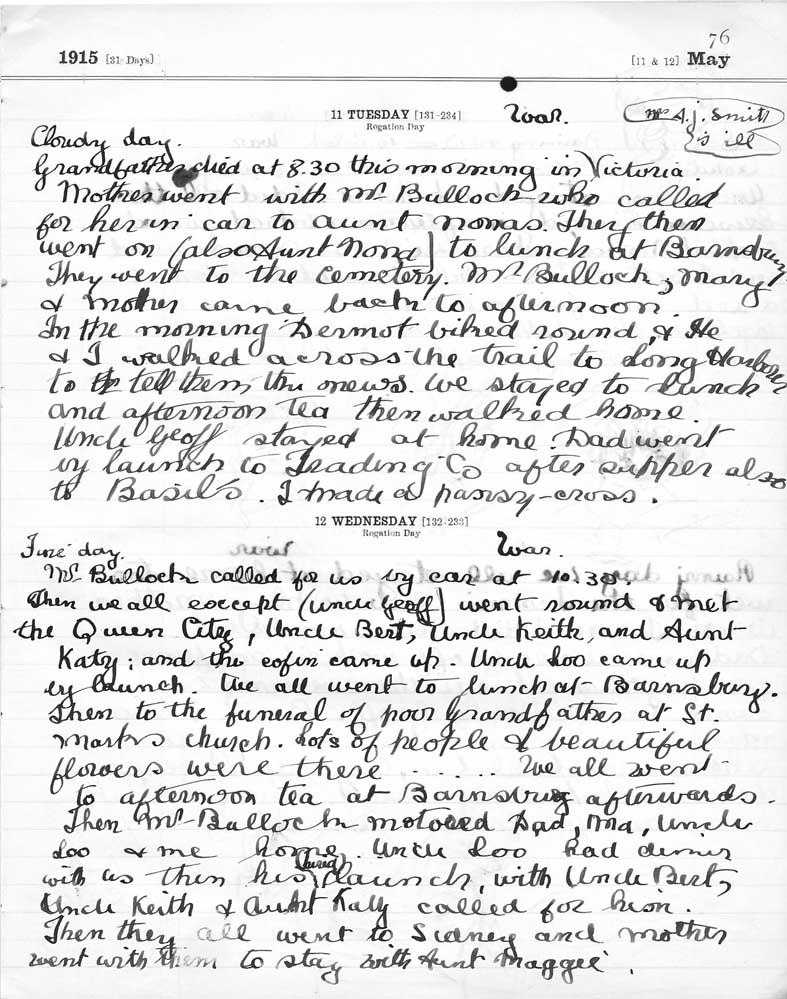 76
1915 [31 Days] [11 & 12] May
11 TUESDAY [131-234] War. Mrs A. J. Smith
Rogation Day is ill
Cloudy day.
Grandfather died at 8.30 this morning in Victoria.
Mother went with Mr Bullock who called
for her in car to aunt nonas. They then
went on (also Aunt Nona) to lunch at Barnsbury
They went to the cemetery. Mr Bullock, Mary
& Mother came back to afternoon.
In the morning Dermot biked round, & He
& I walked across the trail to Long Harbour
to tell them the news. We stayed to lunch
and afternoon tea then walked home.
Uncle Geoff stayed at home. Dad went
by launch to Trading Co after supper also
to Basil's. I made a pansy-cross.
12 WEDNESDAY [132-233]
Rogation Day
Fine day. War.
Mr Bullock called for us by car at 10.30.
Then we all except (uncle Geoff) went round & met
the Queen City, Uncle Bert, Uncle Keith, and Aunt
Katy; and the cofin came up. Uncle Loo came up
by launch. We all went to lunch at Barnsbury.
Then to the funeral of poor Grandfather at St.
Marks church. Lots of people & beautiful
flowers were there ....... We all went
to afternoon tea at Barnsbury afterwards.
Then Mr Bullock motored Dad, Ma, Uncle
Loo & me home. Uncle Loo had dinner
with us then his (hired) launch, with Uncle Bert,
Uncle Keith & Aunt Katy called for him.
Then they all went to Sidney and mother
went with them to stay with Aunt Maggie.